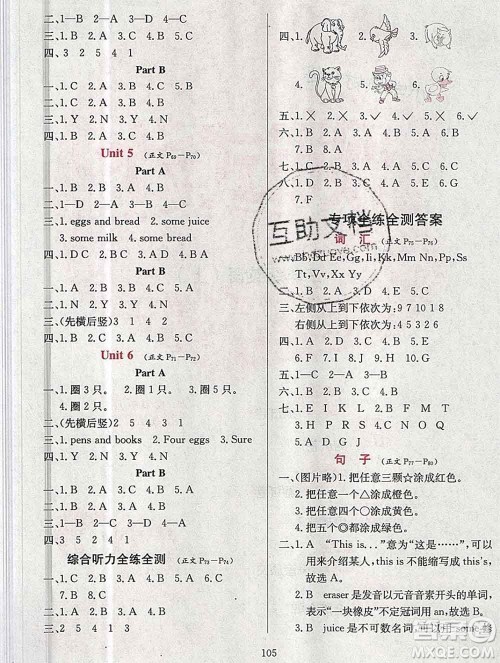 二、1—B 2—A 3—D 4—C
三、1.B 2.C 3.A 4.B 5.A
四、3 2 5 4 1
Part B
一、1.C 2.A 3.B 4.C 5.B
二、1.B 2.A 3.A 4.C 5.C 6.B
三、1.Y 2.N 3.N 4.Y
Unit 5 (正文 P69—P70)
Part A
一、1.B 2.A 3.A 4.B
二、1.B 2.A 3.B 4.A
三、1. eggs and bread 2. some juice
3. some milk 4. some bread
四、1.D 2.C 3.A 4.B
Part B
一、1.B 2.A 3.B 4.C 5.A
二、1.B 2.A 3.A 4.A
三、(先横后竖) 3 1 4 2
Unit 6 (正文 P71—P72)
Part A
一、1. 圈 3 只。 2. 圈 1 支。
3. 圈 5 只。 4. 圈 2 只。
二、(先横后竖) 2 5 4 3 1
三、1. pens and books 2. Four eggs 3. Sure
Part B
一、1.B 2.B 3.C 4.B 5.A
二、1—B 2—C 3—D 4—A
三、1.Y 2.N 3.N 4.Y
综合听力全练全测 (正文 P73—P74)
一、1.B 2.A 3.B 4.A 5.A 6.C
7.B
二、1—D 2—A 3—B 4—C
三、2 5 4 1 3
四、1. 2. 3.
4. 5. 6.
五、1.× 2.✓ 3.× 4.✓ 5.×
六、1.B 2.C 3.A 4.B 5.B 6.A
7.C
七、1.C 2.D 3.A 4.B 5.G 6.E
7.F
专项全练全测答案
词 汇 (正文 P75—P76)
一、Bb, Dd, Ee, Gg, Ii, Kk, Mm, Nn, Pp, Ss
Tt, Vv, Xx, Yy
二、D C A B
三、左侧从上到下依次为:9 7 10 1 8
右侧从上到下依次为:4 5 3 2 6
四、1.D 2.A 3.C 4.E 5.B 6.G
7.F
五、1—C 2—A 3—B
六、1.B 2.C 3.A 4.B 5.C
七、1. E I K L 2. B D E G
3. M N O P 4. R S T U
5. A D G J
句 子 (正文 P77—P80)
一、(图片略) 1. 把任意三颗☆涂成红色。
2. 把任意一个△涂成橙色。
3. 把任意四个□涂成黄色。
4. 把任意五个◎涂成绿色。
二、1. A "This is..."意为“这是……”,可以
用来介绍某人,而this is不能缩写成this's,
故选 A。
2. B eraser 是发音以元音音素开头的单词,
表示“一块橡皮”不定冠词用 an,故选 B。
3. B juice 是不可数名词,可以用 some 修
105
互助文档
答案圈
MXQE.COM